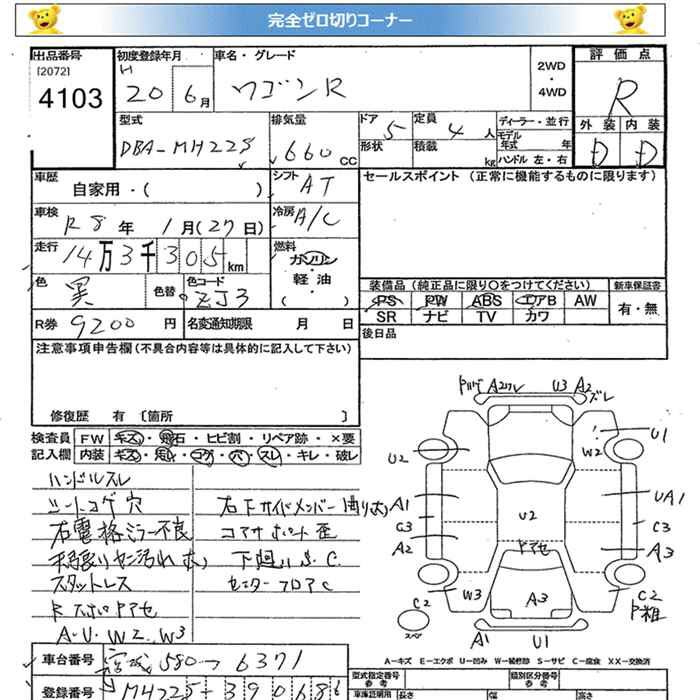 完全ゼロ切りコーナー
出品番号 [2072] 4103
初度登録年月 H 20 6月
車名・グレード ワゴンR
2WD・4WD
評価点 R
外装 D 内装 D
型式 DBA-MH22S
排気量 660 CC
ドア 5 形状
定員 4人 積載 kg
ディーラー・並行
モデル年式 年
ハンドル 左・右
車歴 自家用・( )
シフト AT
セールスポイント (正常に機能するものに限ります)
車検 R8年 1月(27日)
冷房 A/C
走行 14万3千305km
燃料 ガソリン・軽油・( )
色 黒 色替 色コード ZJ3
装備品 (純正品に限り○をつけてください) 新車保証書
PS PW ABS エアB AW 有・無
SR ナビ TV カワ
R券 9200円 名変通知期限 月 日
後日品
注意事項申告欄 (不具合内容等は具体的に記入して下さい)
修復歴 有 [箇所 ]
検査員記入欄 FW キズ・飛石・ヒビ割・リペア跡・×要
内装 キズ・コゲ・穴・スレ・キレ・破レ
ハンドルスレ
シートコゲ穴
右電格ミラー不良
スタットレス
A・U・W2、W3
右下サイドメンバー曲り
コアサポート歪
下廻りS、C
センターフロアC
A2 U3 A2 ズレ
U1
W2
U2
A1
C3
A2
W3
U2
UA1
C3
A3
A3
C2
C2
A1 U1
A-キズ E-エクボ U-凹み W-補修跡 S-サビ C-腐食 XX-交換済
車台番号 宮城 580 6371
登録番号 MH22S-390686
型式指定番号 類別区分番号
参考 参考
車庫証明用 長さ 幅 高さ